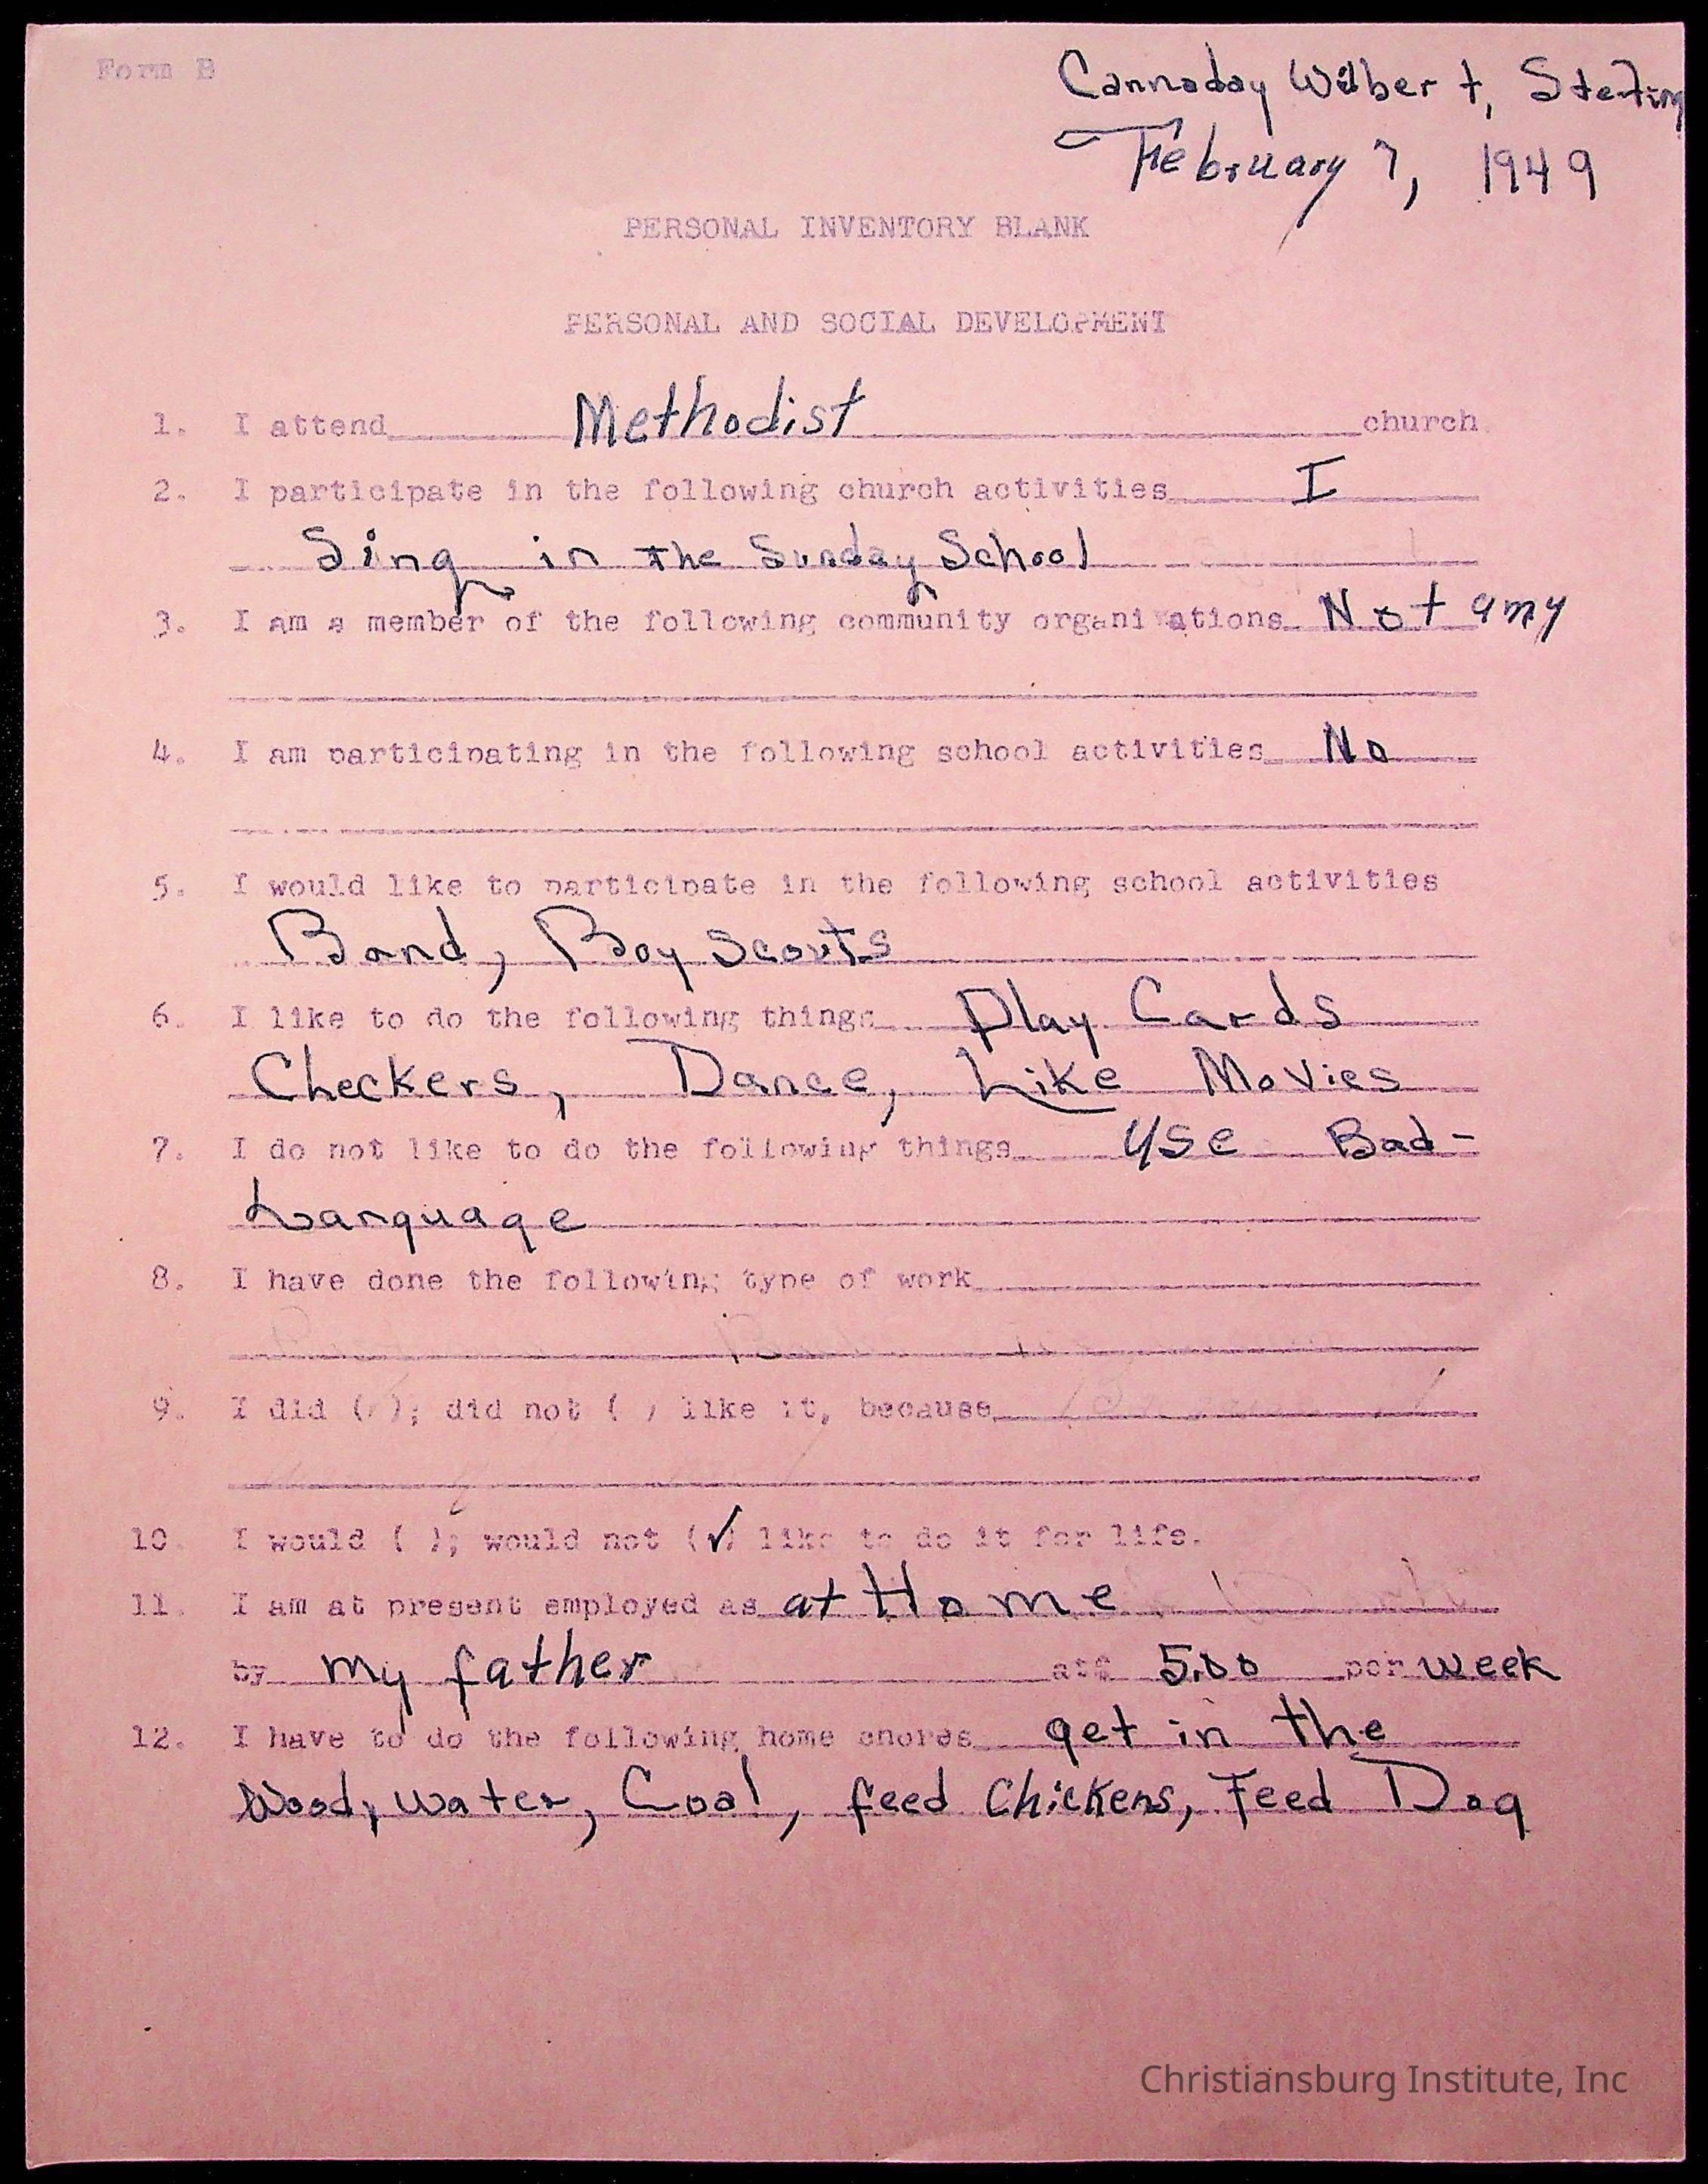 Form B
Cannaday Wilbert, Sterling
February 7, 1949
PERSONAL INVENTORY BLANK
PERSONAL AND SOCIAL DEVELOPMENT
1. I attend Methodist church
2. I participate in the following church activities I
Sing in the Sunday School
3. I am a member of the following community organizations Not any
4. I am participating in the following school activities No
5. I would like to participate in the following school activities
Band, Boy Scouts
6. I like to do the following things Play Cards
Checkers, Dance, Like Movies
7. I do not like to do the following things Use Bad-
Language
8. I have done the following type of work
9. I did ( ); did not ( ) like it, because
10. I would ( ); would not (✓) like to do it for life.
11. I am at present employed as at Home
by my father at $ 5.00 per week
12. I have to do the following home chores get in the
Wood, water, Coal, feed Chickens, Feed Dog
Christiansburg Institute, Inc